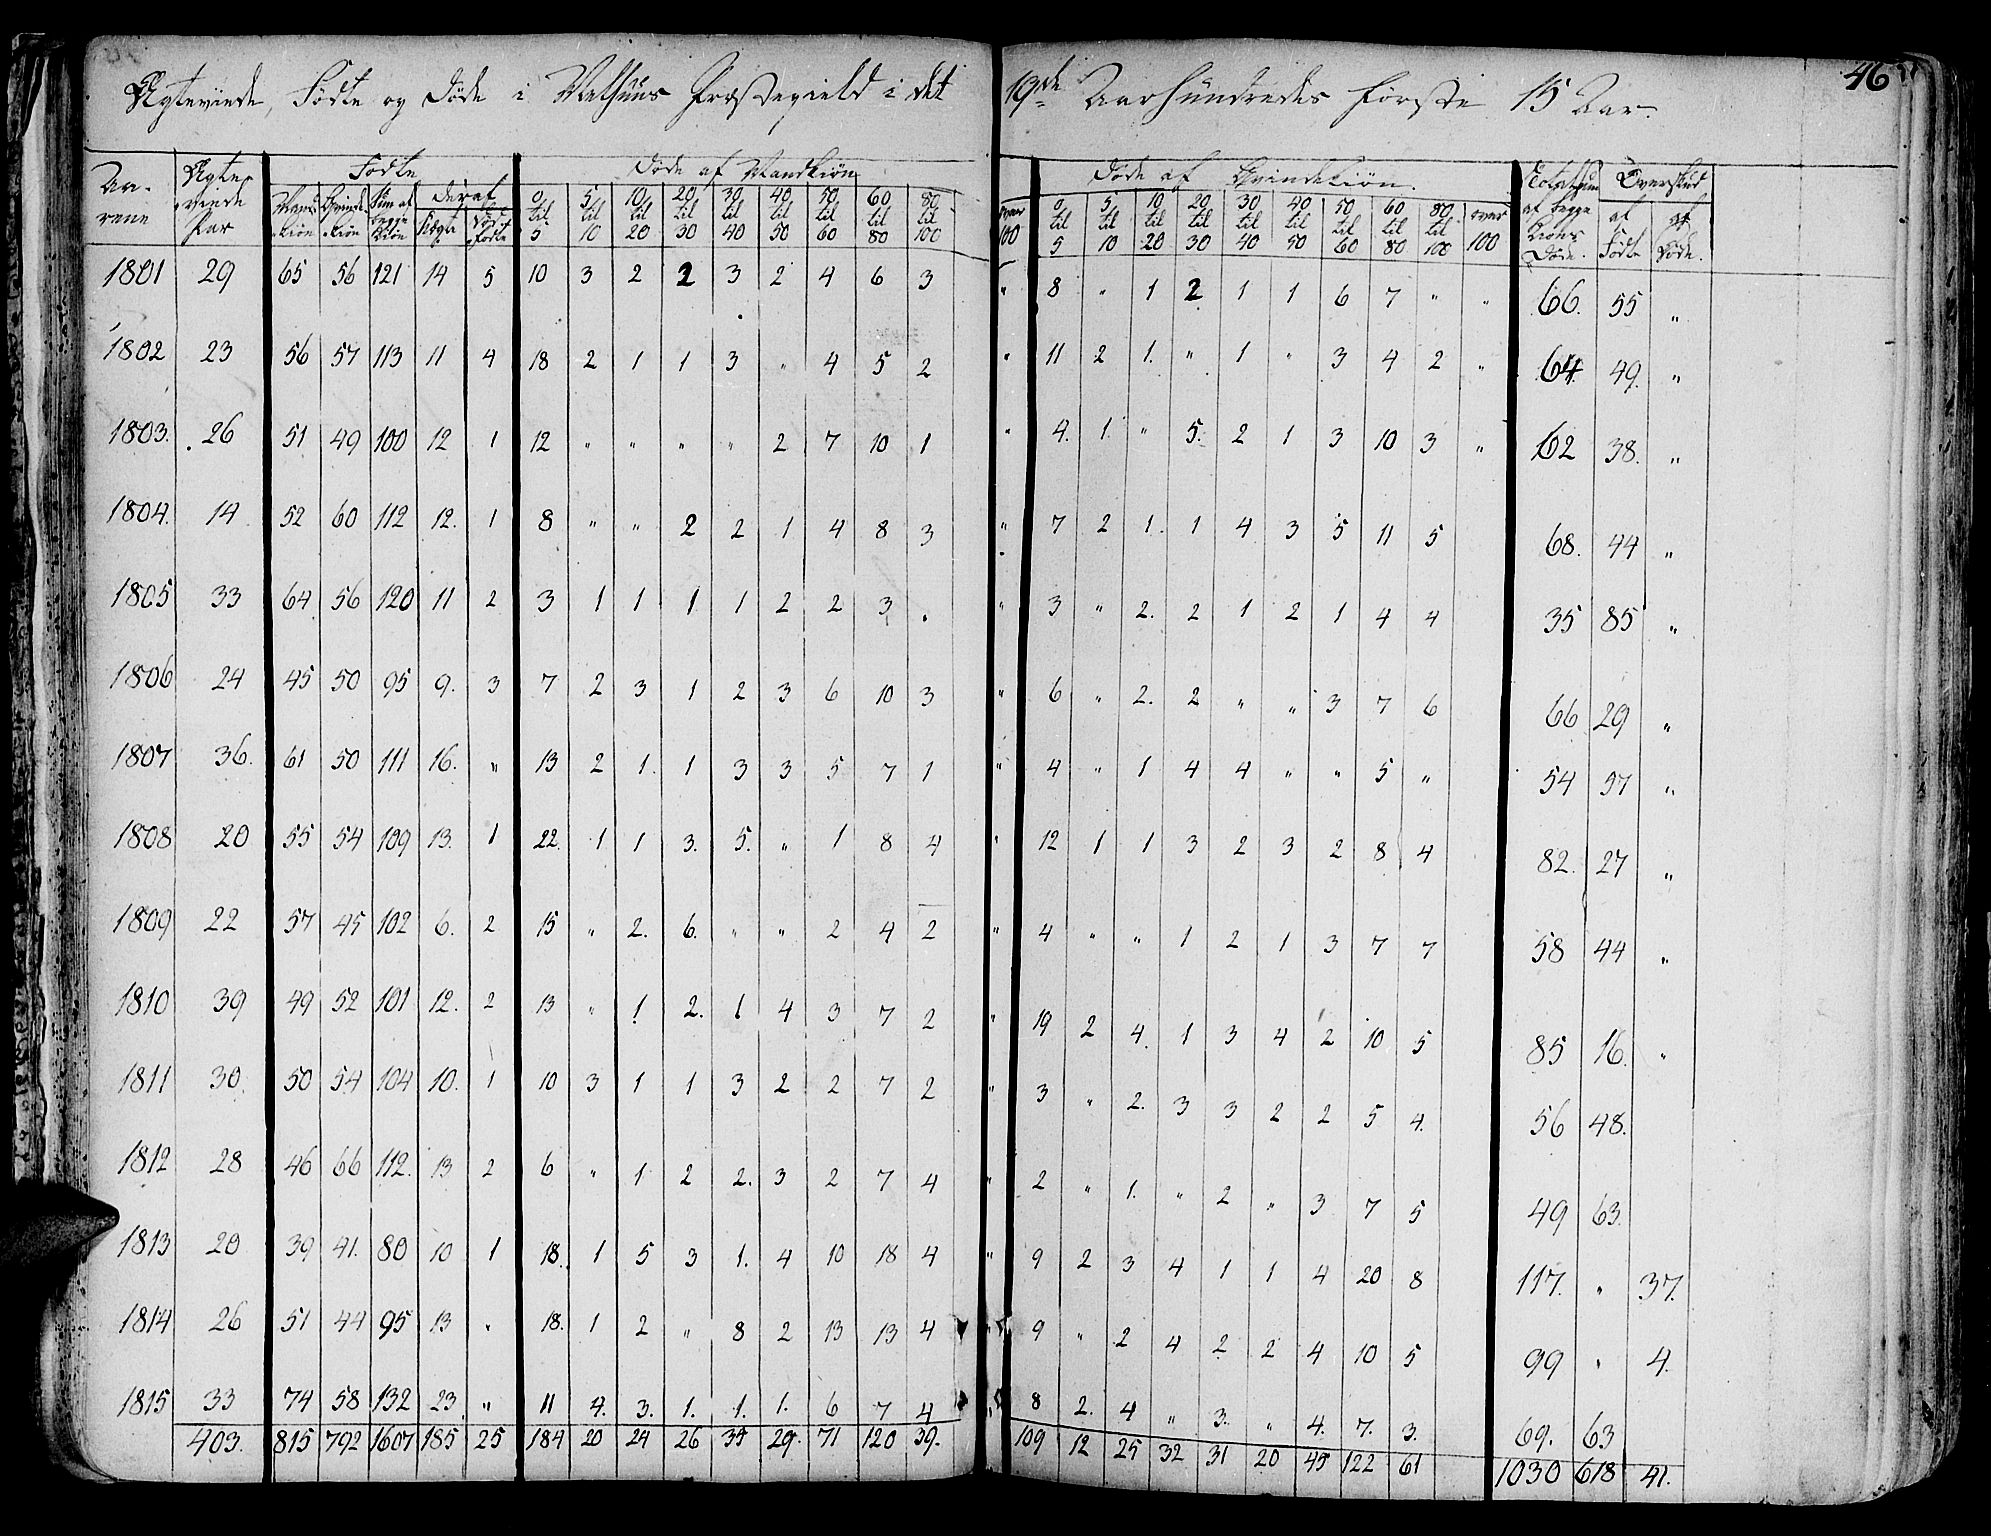 46
Ægteviede, Fødte og Døde i Melhuus Præstegield i det 19de Aarhundredes første 15 Aar.
Aa-rene | Ægte-viede Par | Fødte | Døde af Mandkiøn | Døde af Qvindekiøn. | Total Sum af begge Kiøns Døde. | Overskud
Mand-kiøn | Qvinde-kiøn | Sum af begge Kiøn | Deraf | af Fødte | af Døde.
Uægte | Død-fødte | 0 til 5 | 5 til 10 | 10 til 20 | 20 til 30 | 30 til 40 | 40 til 50 | 50 til 60 | 60 til 80 | 80 til 100 | over 100 | 0 til 5 | 5 til 10 | 10 til 20 | 20 til 30 | 30 til 40 | 40 til 50 | 50 til 60 | 60 til 80 | 80 til 100 | over 100
1801 29 65 56 121 14 5 10 3 2 2 3 2 4 6 3 " 8 " 1 2 1 1 6 7 " " 66. 55 "
1802 23 56 57 113 11 4 18 2 1 1 3 " 4 5 2 " 11 2 1. " 1 " 3 4 2 " 64 49. "
1803. 26 51 49 100 12 1 12 " " " " 2 7 10 1 " 4. 1. " 5. 2 1 3 10 3 " 62 38. "
1804. 14 52 60 112 12. 1 8 " " 2 2 1 4 8 3 " 7 2 1. 1 4 3 5 11 5 68. 44 "
1805 33 64 56 120 11 2 3 1 1 1 1 2 2 3 . " 3 " 2. 2 1 2 1 4 4 35 85 "
1806 24 45 50 95 9. 3 7 2 3 1 2 3 6 10 3 " 6 " 2. 2 " " 3 7 6 66 29 "
1807 36. 61 50 111 16. " 13 2 1. 1 3 3 5 7 1 " 4 " 1 4 4 " " 5 " 54 57 "
1808 20 55 54 109 13. 1 22. 1 1 3. 5. " 1 8 4 " 12 1 1 3 2 3 2 8 4 82. 27 "
1809 22 57 45 102 6. 2 15 " 2. 6. " " 2 4 2 " 4 " " 1 2 1 3 7 7 58 44 "
1810 39 49 52 101 12. 2 13 " 1 2. 1 4 3 7 2 " 19 2 4. 1 3 4 2 10 5 85 16. "
1811 30. 50 54 104 10. 1 10 3 1 1 3 2 2 7 2 " 3 " 2. 3 3 2 2 5 4. 56 48.
1812 28 46 66 112. 13 2 6 " 1 2 2. 3 2 7 4 " 2 " 1. " 2 " 3 7 5 49 63.
1813 20 39 41. 80 10 1 18. 1 5 3 1. 4 10 18 4 " 9 2 3 4 1 1 4 20 8 117. " 37.
1814 26 51 44 95 13 " 18. 1 2 " 8 2 13 13 4 " 9 " 2 4 2 2 4 10 5 99 " 4.
1815 33 74 58 132 23 " 11 4. 3. 1. 1. 1. 6 7 4 " 8 2. 4 " 3. " 4. 7. 3. 69. 63
403. 815 792 1607 185 25 184 20 24 26 35 29. 71 120 39. 109 12 25 32 31 20 45 122 61 1030 618 41.